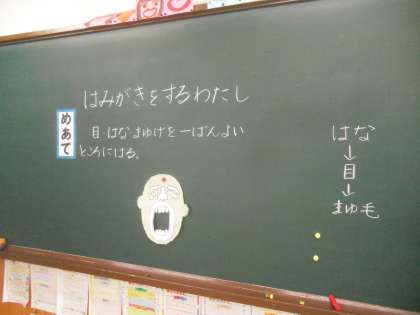 はみがきをするわたし
めあて
目・はな・まゆげを一ばんよい
ところにはる。
はな
↓
目
↓
まゆ毛